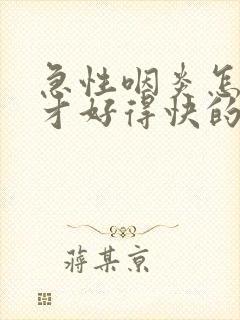 急性咽炎怎
才好得快的
蒋某京